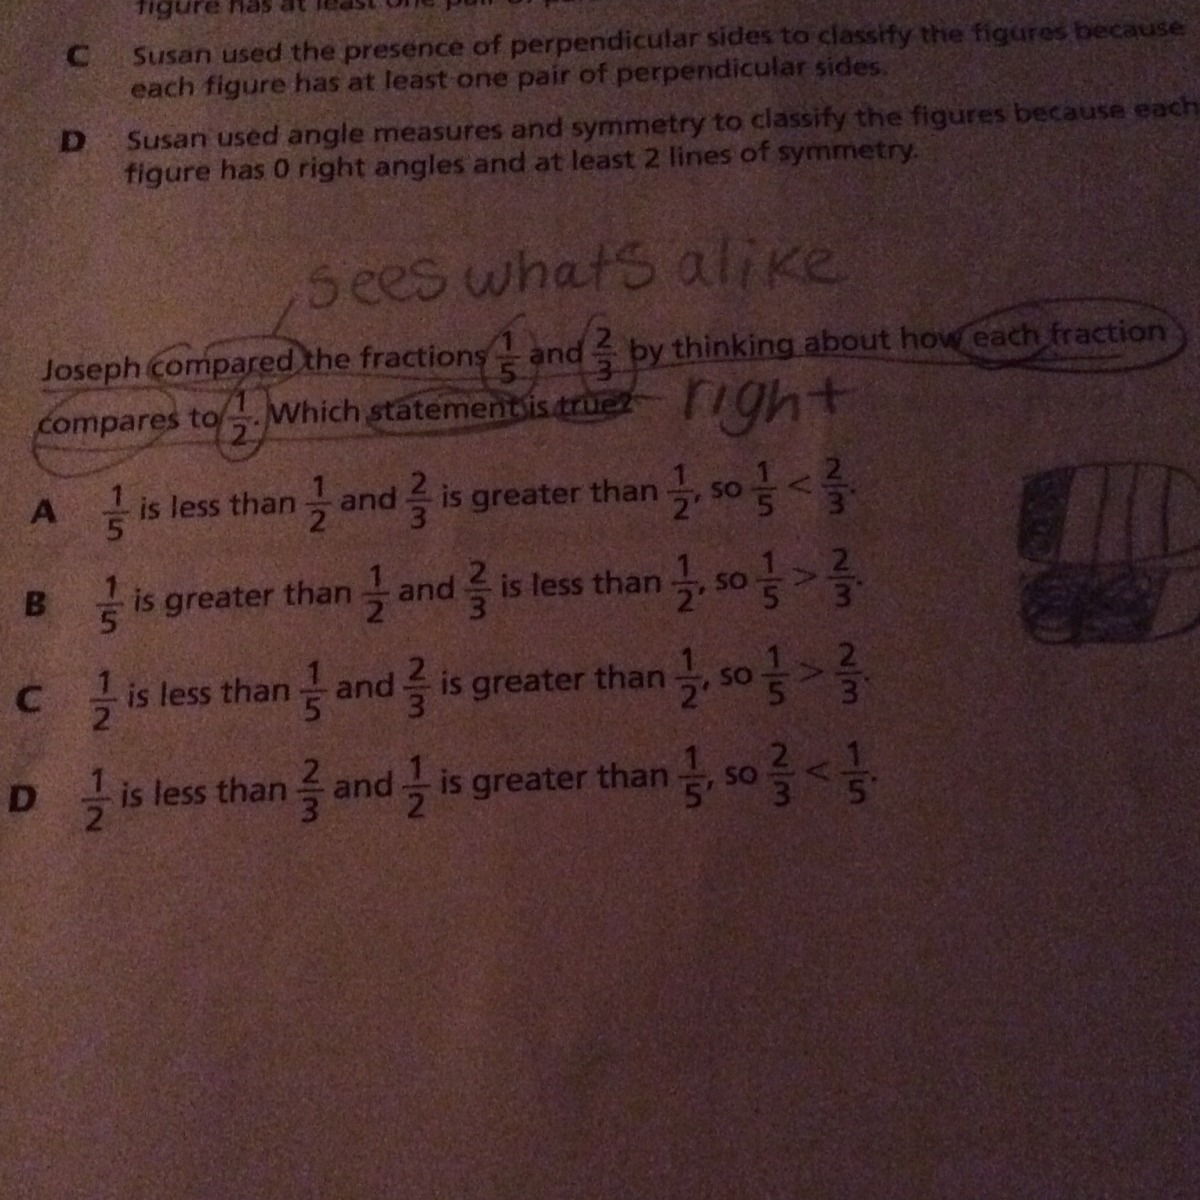 figure has at least one pair of
C Susan used the presence of perpendicular sides to classify the figures because
each figure has at least one pair of perpendicular sides.
D Susan used angle measures and symmetry to classify the figures because each
figure has 0 right angles and at least 2 lines of symmetry.
sees whats alike
Joseph compared the fractions 1/5 and 2/3 by thinking about how each fraction
compares to 1/2. Which statement is true?
right
A 1/5 is less than 1/2 and 2/3 is greater than 1/2, so 1/5 < 2/3.
B 1/5 is greater than 1/2 and 2/3 is less than 1/2, so 1/5 > 2/3.
C 1/2 is less than 1/5 and 2/3 is greater than 1/2, so 1/5 > 2/3.
D 1/2 is less than 2/3 and 1/2 is greater than 1/5, so 2/3 < 1/5.